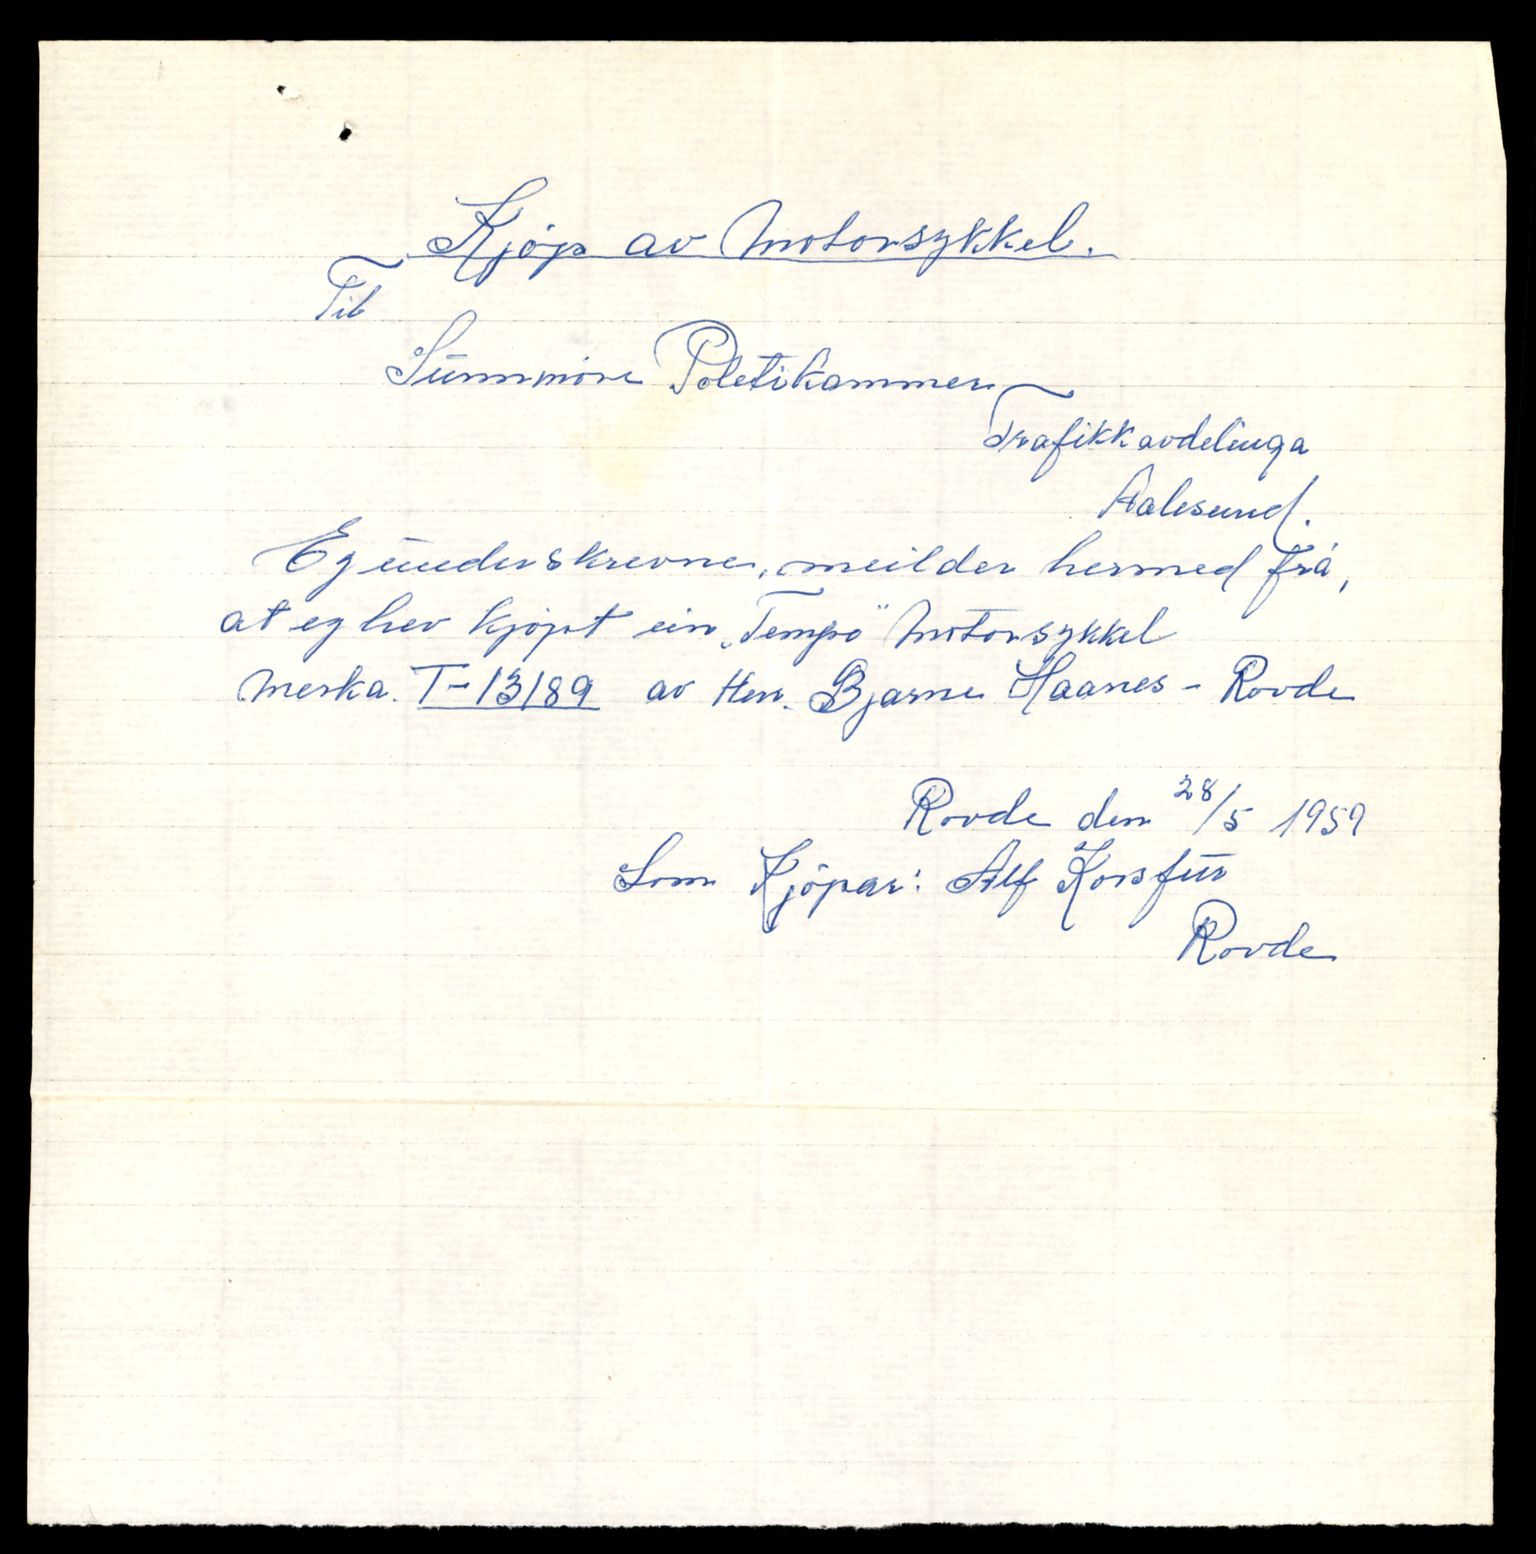 Kjöp av Motorsykkel.
Til
Sunnmöre Poletikammer
Trafikkavdelinga
Aalesund.
Eg underskrevne, meilder hermed frå,
at eg hev kjöpt ein „Tempo" Motorsykkel
merka. T-13189 av Herr. Bjarne Haanes - Rovde
Rovde den 28/5 1959
Som Kjöpar: Alf Korsfur
Rovde